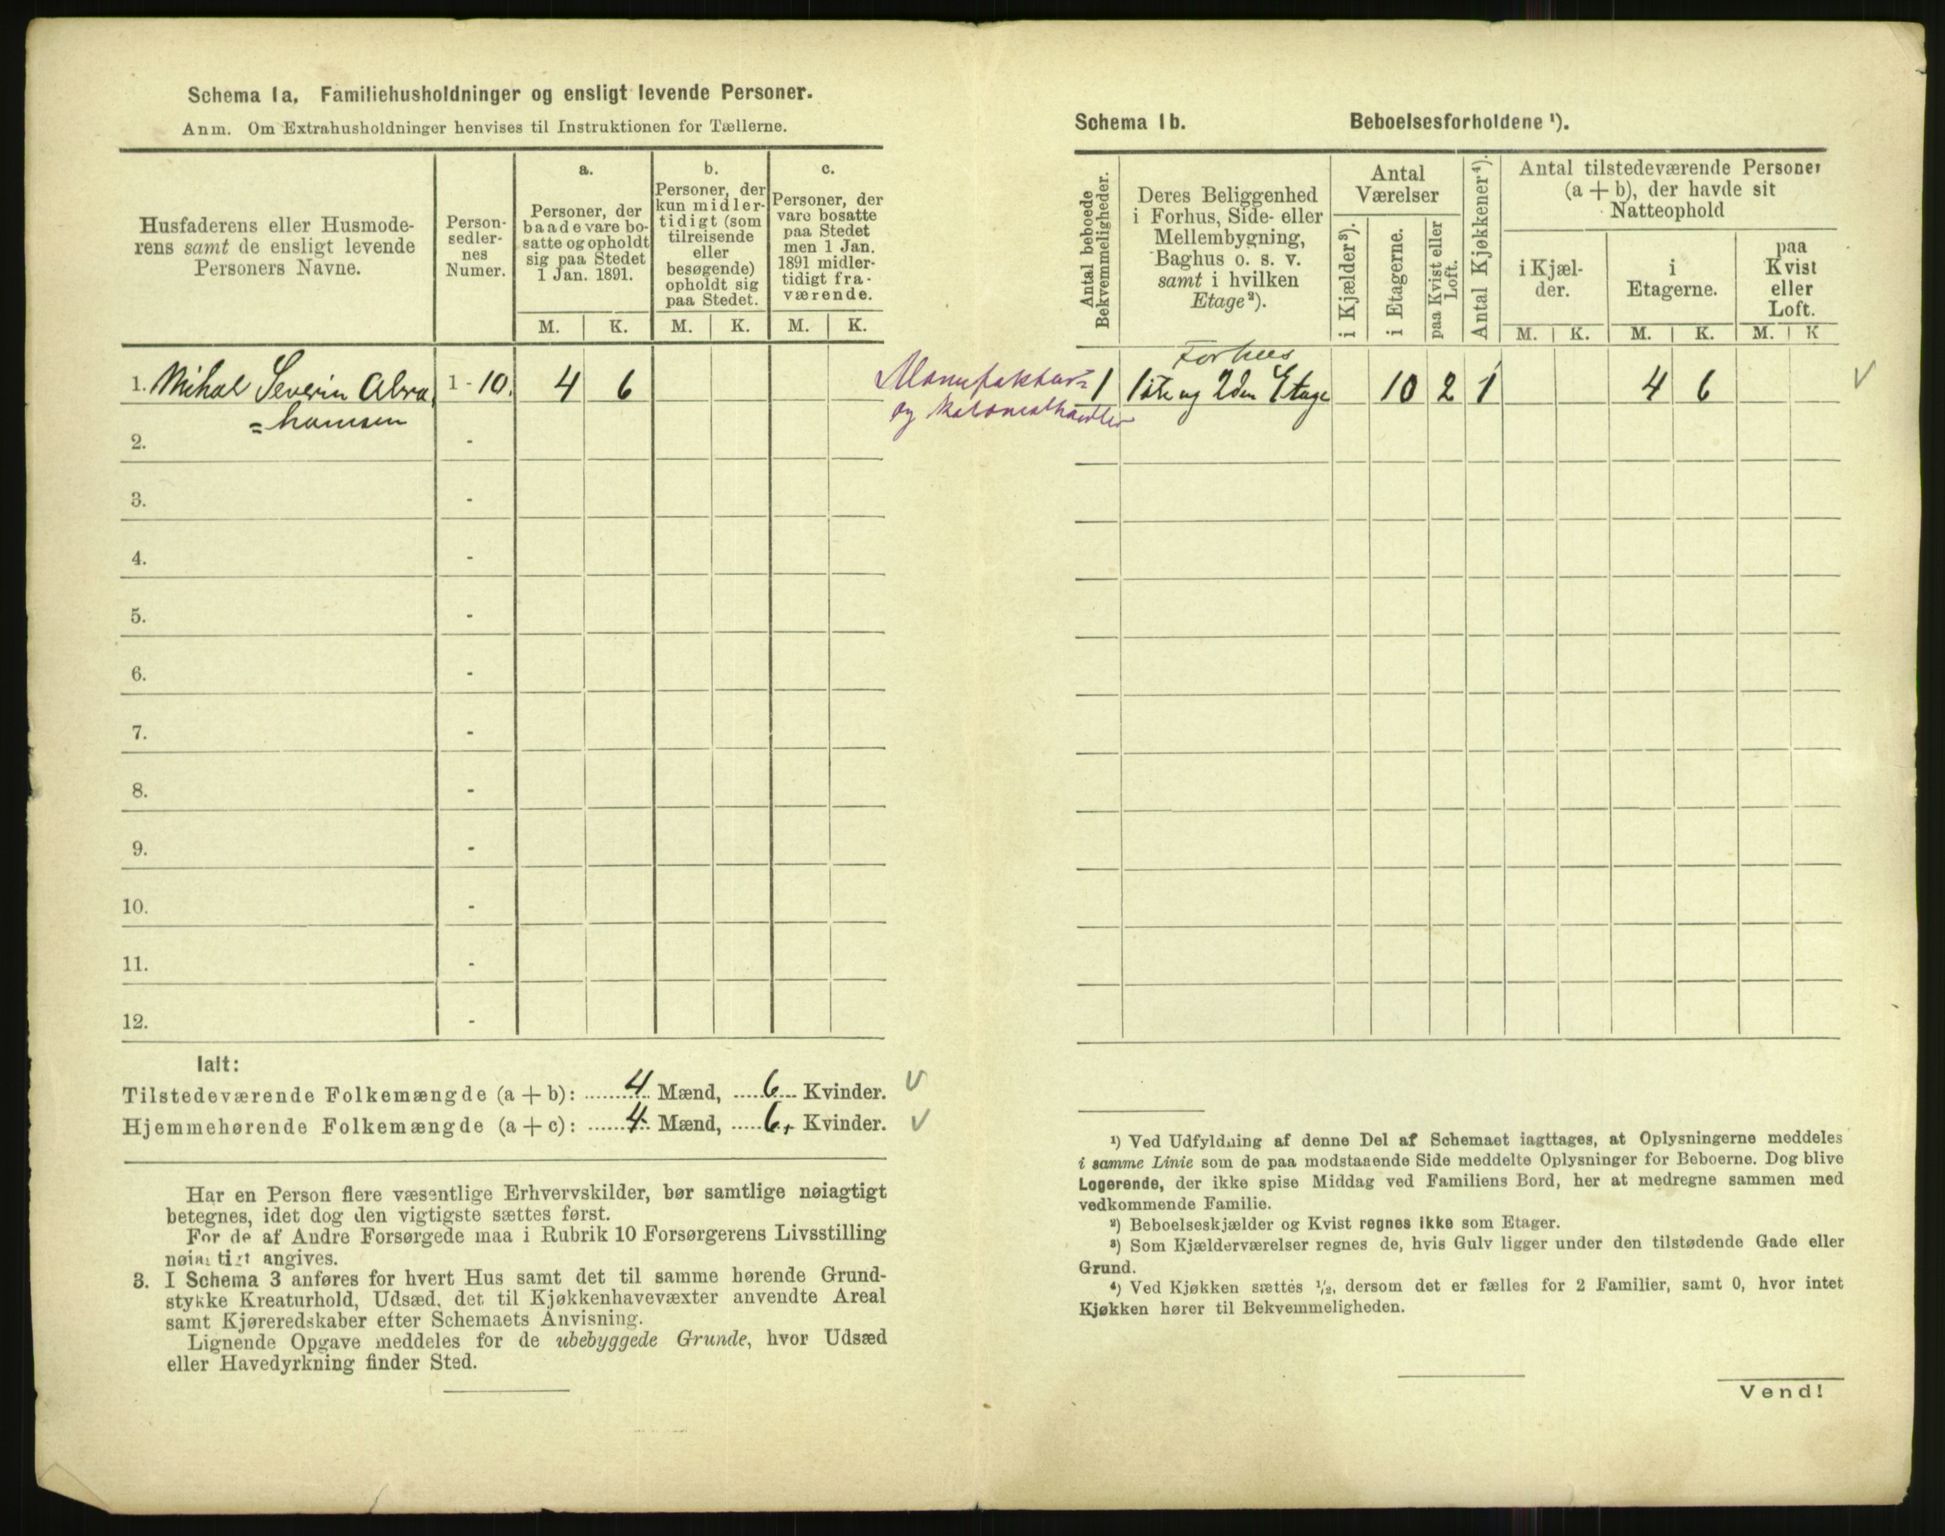 Schema 1a. Familiehusholdninger og ensligt levende Personer.
Anm. Om Extrahusholdninger henvises til Instruktionen for Tællerne.
Husfaderens eller Husmode-
rens samt de ensligt levende
Personers Navne.
Person-
sedler-
nes
Numer.
a.
Personer, der
baade vare bo-
satte og opholdt
sig paa Stedet
1 Jan. 1891.
b.
Personer, der
kun midler-
tidigt (som
tilreisende
eller
besøgende)
opholdt sig
paa Stedet.
c.
Personer, der
vare bosatte
paa Stedet
men 1 Jan.
1891 midler-
tidigt fra-
værende.
M. K. M. K. M. K.
1. Mihal Severin Abra 1 - 10. 4 6
= hamsen
2. -
3. -
4. -
5. -
6. -
7. -
8. -
9. -
10. -
11. -
12. -
Ialt:
Tilstedeværende Folkemængde (a + b): 4 Mænd, 6 Kvinder.
Hjemmehørende Folkemængde (a + c): 4 Mænd, 6 Kvinder.
Har en Person flere væsentlige Erhvervskilder, bør samtlige nøiagtigt
betegnes, idet dog den vigtigste sættes først.
For de af Andre Forsørgede maa i Rubrik 10 Forsørgerens Livsstilling
nøiagtigt angives.
3. I Schema 3 anføres for hvert Hus samt det til samme hørende Grund-
stykke Kreaturhold, Udsæd, det til Kjøkkenhavevæxter anvendte Areal
samt Kjøreredskaber efter Schemaets Anvisning.
Lignende Opgave meddeles for de ubebyggede Grunde, hvor Udsæd
eller Havedyrkning finder Sted.
Schema 1b. Beboelsesforholdene ¹).
Antal beboede
Bekvemmeligheder.
Deres Beliggenhed
i Forhus, Side- eller
Mellembygning,
Baghus o. s. v.
samt i hvilken
Etage²).
Antal
Værelser
i Kjælder³).
i Etagerne.
paa Kvist eller
Loft.
Antal Kjøkkener⁴).
Antal tilstedeværende Personer
(a + b), der havde sit
Natteophold
i Kjæl-
der.
i
Etagerne.
paa
Kvist
eller
Loft.
M. K. M. K. M. K
Manufaktur=
og Kolonialhandler
Forhus
1 1ste og 2den Etage 10 2 1 4 6
¹) Ved Udfyldning af denne Del af Schemaet iagttages, at Oplysningerne meddeles
i samme Linie som de paa modstaaende Side meddelte Oplysninger for Beboerne. Dog blive
Logerende, der ikke spise Middag ved Familiens Bord, her at medregne sammen med
vedkommende Familie.
²) Beboelseskjælder og Kvist regnes ikke som Etager.
³) Som Kjælderværelser regnes de, hvis Gulv ligger under den tilstødende Gade eller
Grund.
⁴) Ved Kjøkken sættes ½, dersom det er fælles for 2 Familier, samt 0, hvor intet
Kjøkken hører til Bekvemmeligheden.
Vend!